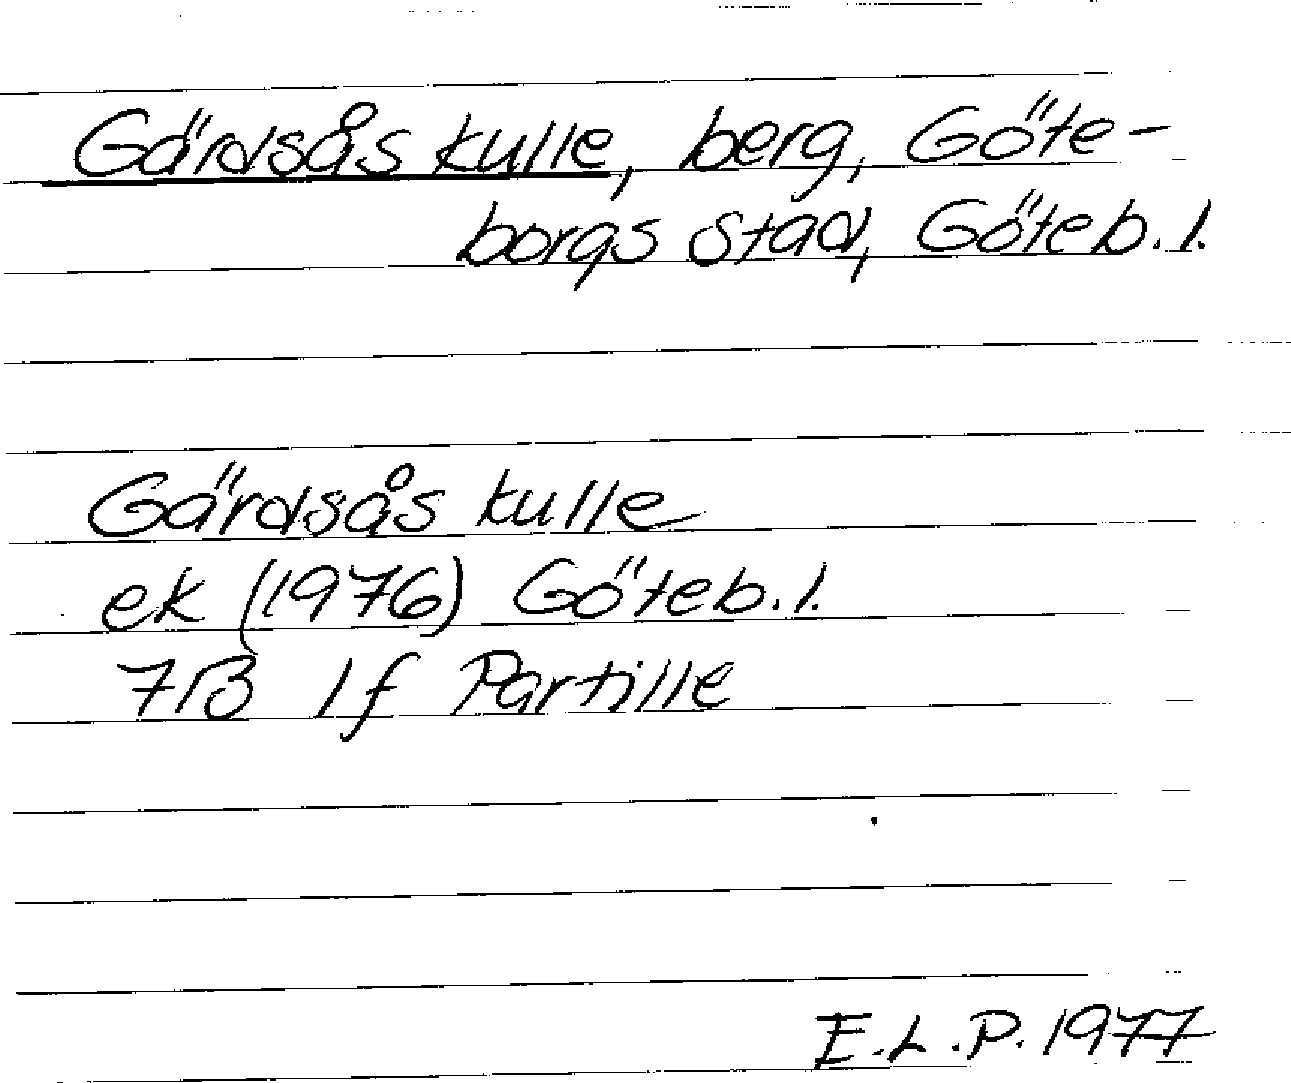 Gärdsås kulle, berg, Göte-
borgs stad, Göteb. l.
Gärdsås kulle
ek (1976) Göteb. l.
7B 1f Partille
E.L.P. 1977